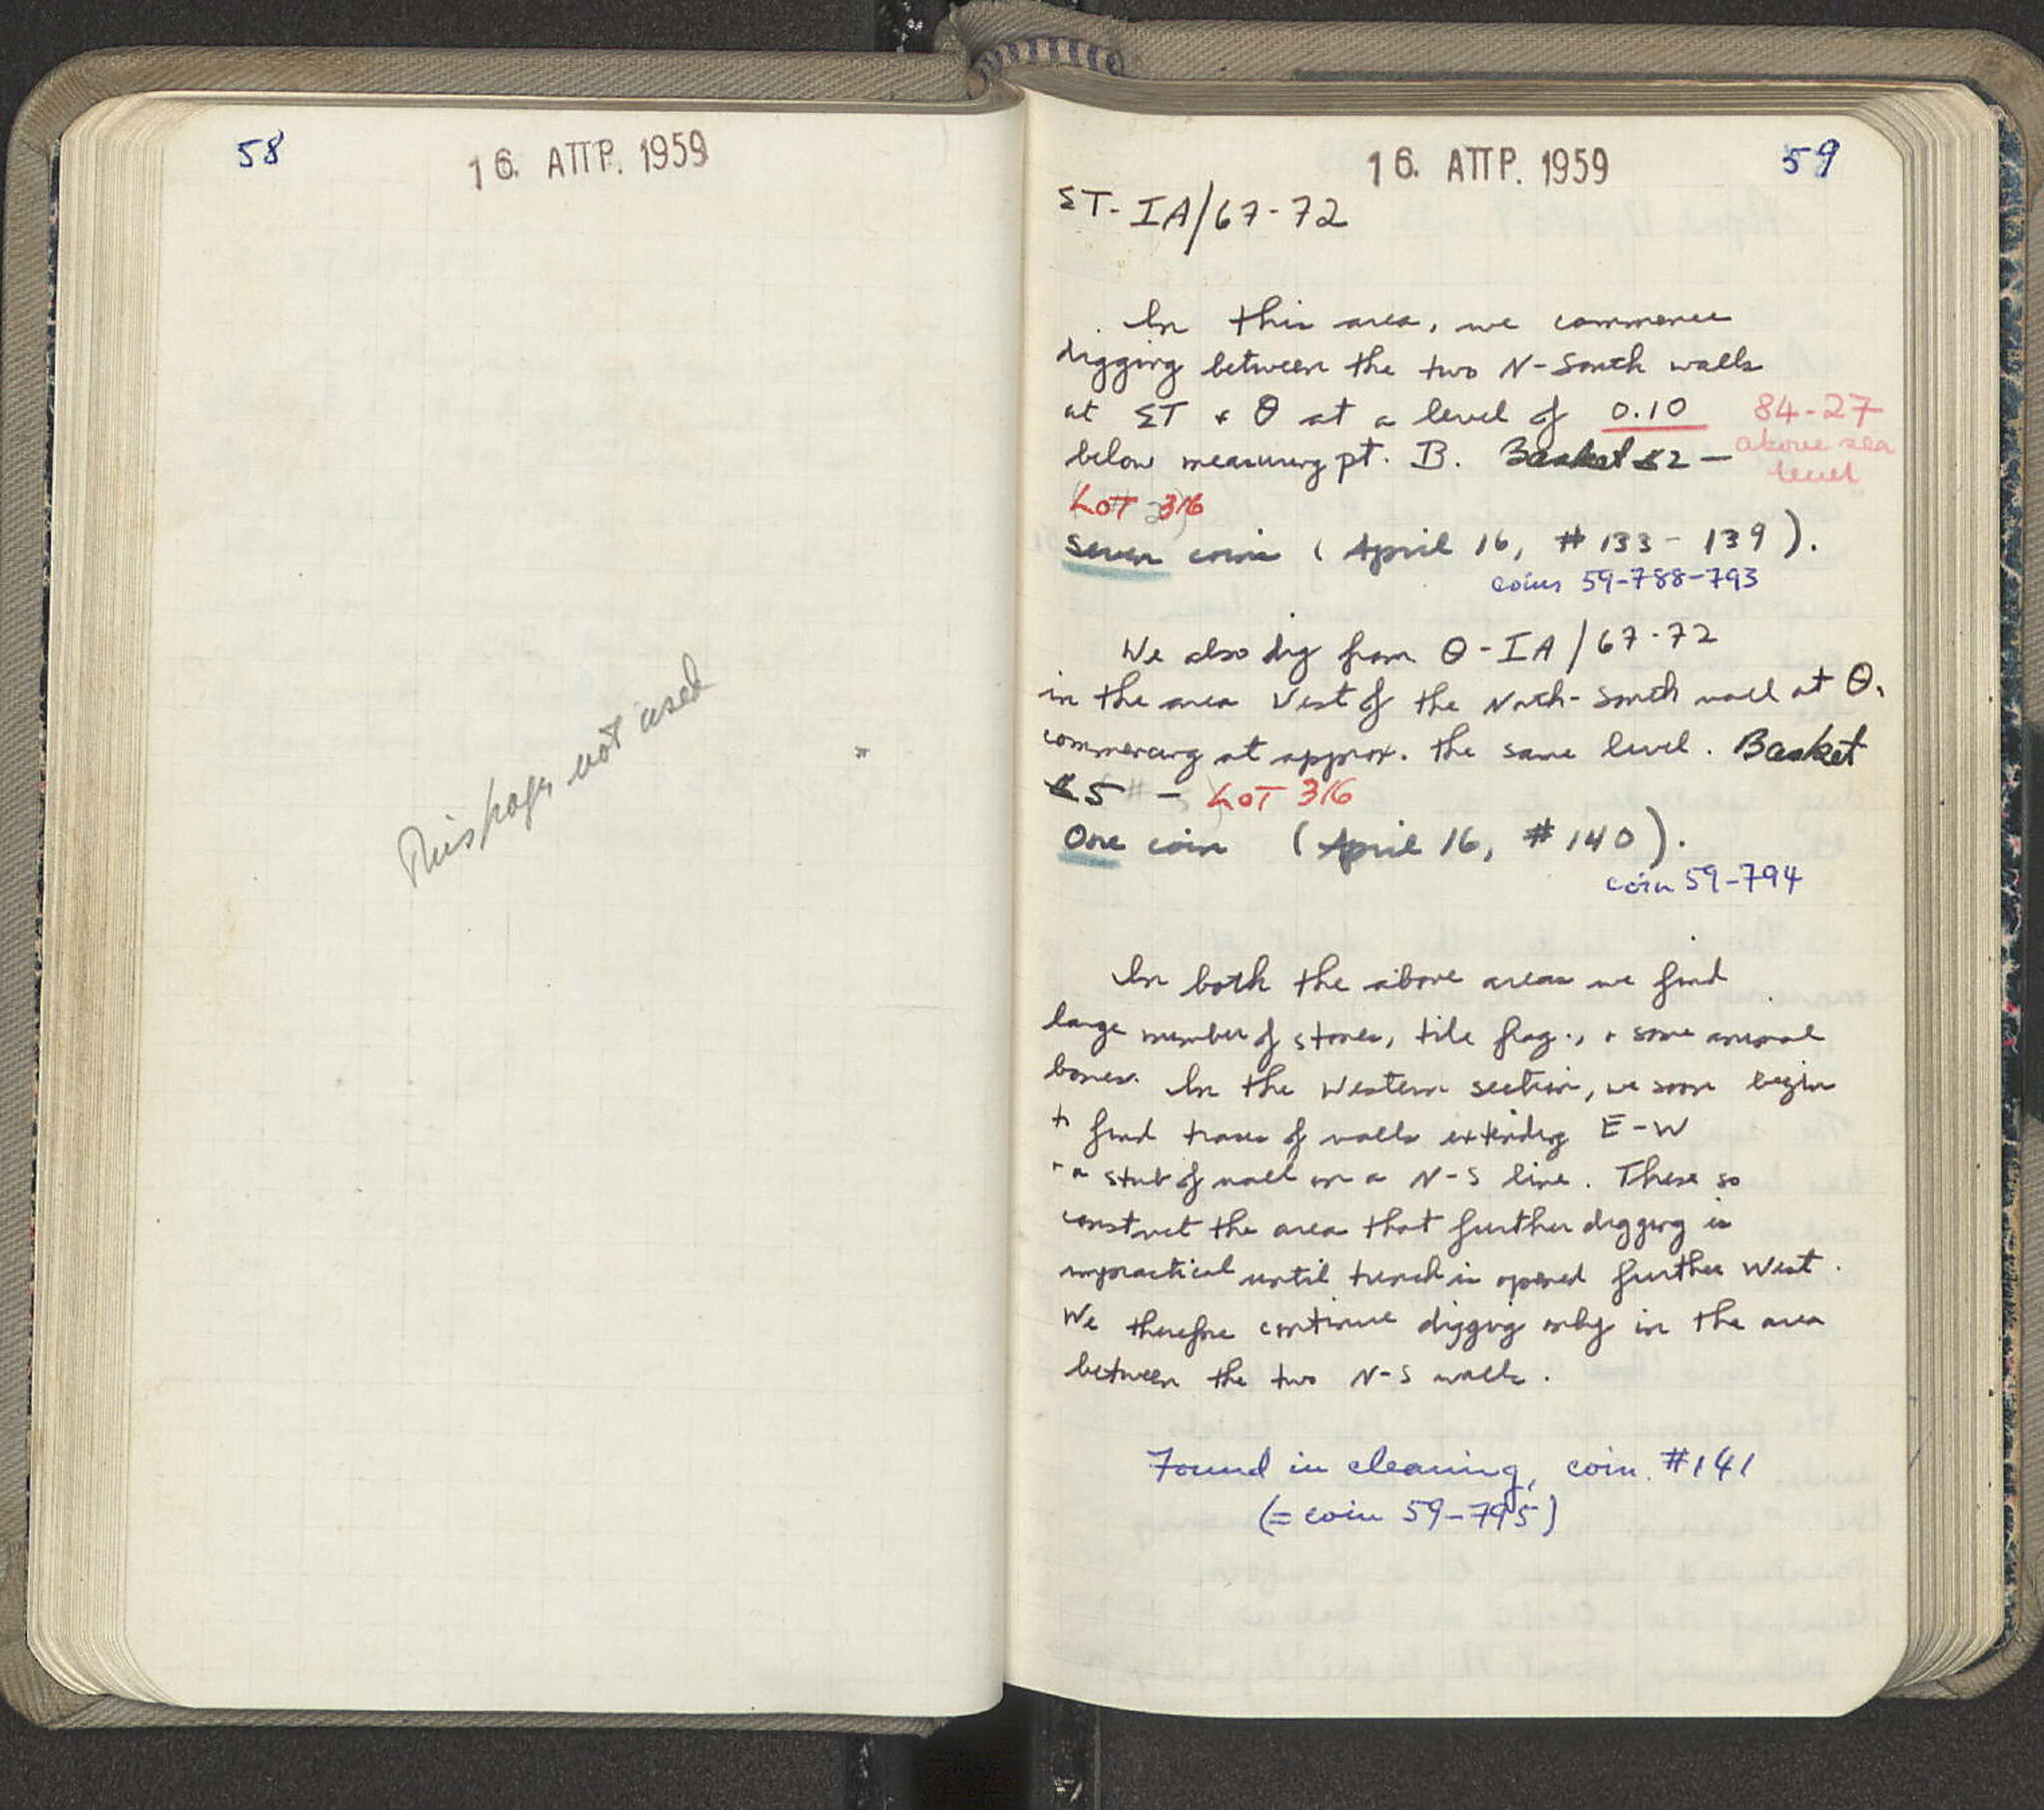 58
16. ΑΠΡ. 1959
This page not used
16. ΑΠΡ. 1959
59
ΣΤ-ΙΑ/67-72
In this area, we commence
digging between the two N-South walls
at ΣΤ + Θ at a level of 0.10 84-27
below measuring pt. B. Basket 2 - above sea
level
LOT 316
Seven coins (April 16, #133-139).
coins 59-788-793
We also dig from Θ-ΙΑ/67-72
in the area West of the North-South wall at Θ,
commencing at approx. the same level. Basket
5 - LOT 316
One coin (April 16, #140).
coin 59-794
In both the above areas we find
large number of stones, tile frag., + some animal
bones. In the western section, we soon begin
to find traces of walls extending E-W
+ a stub of wall on a N-S line. These so
constrict the area that further digging is
impractical until trench is opened further West.
We therefore continue digging only in the area
between the two N-S walls.
Found in cleaning, coin #141
(= coin 59-795)